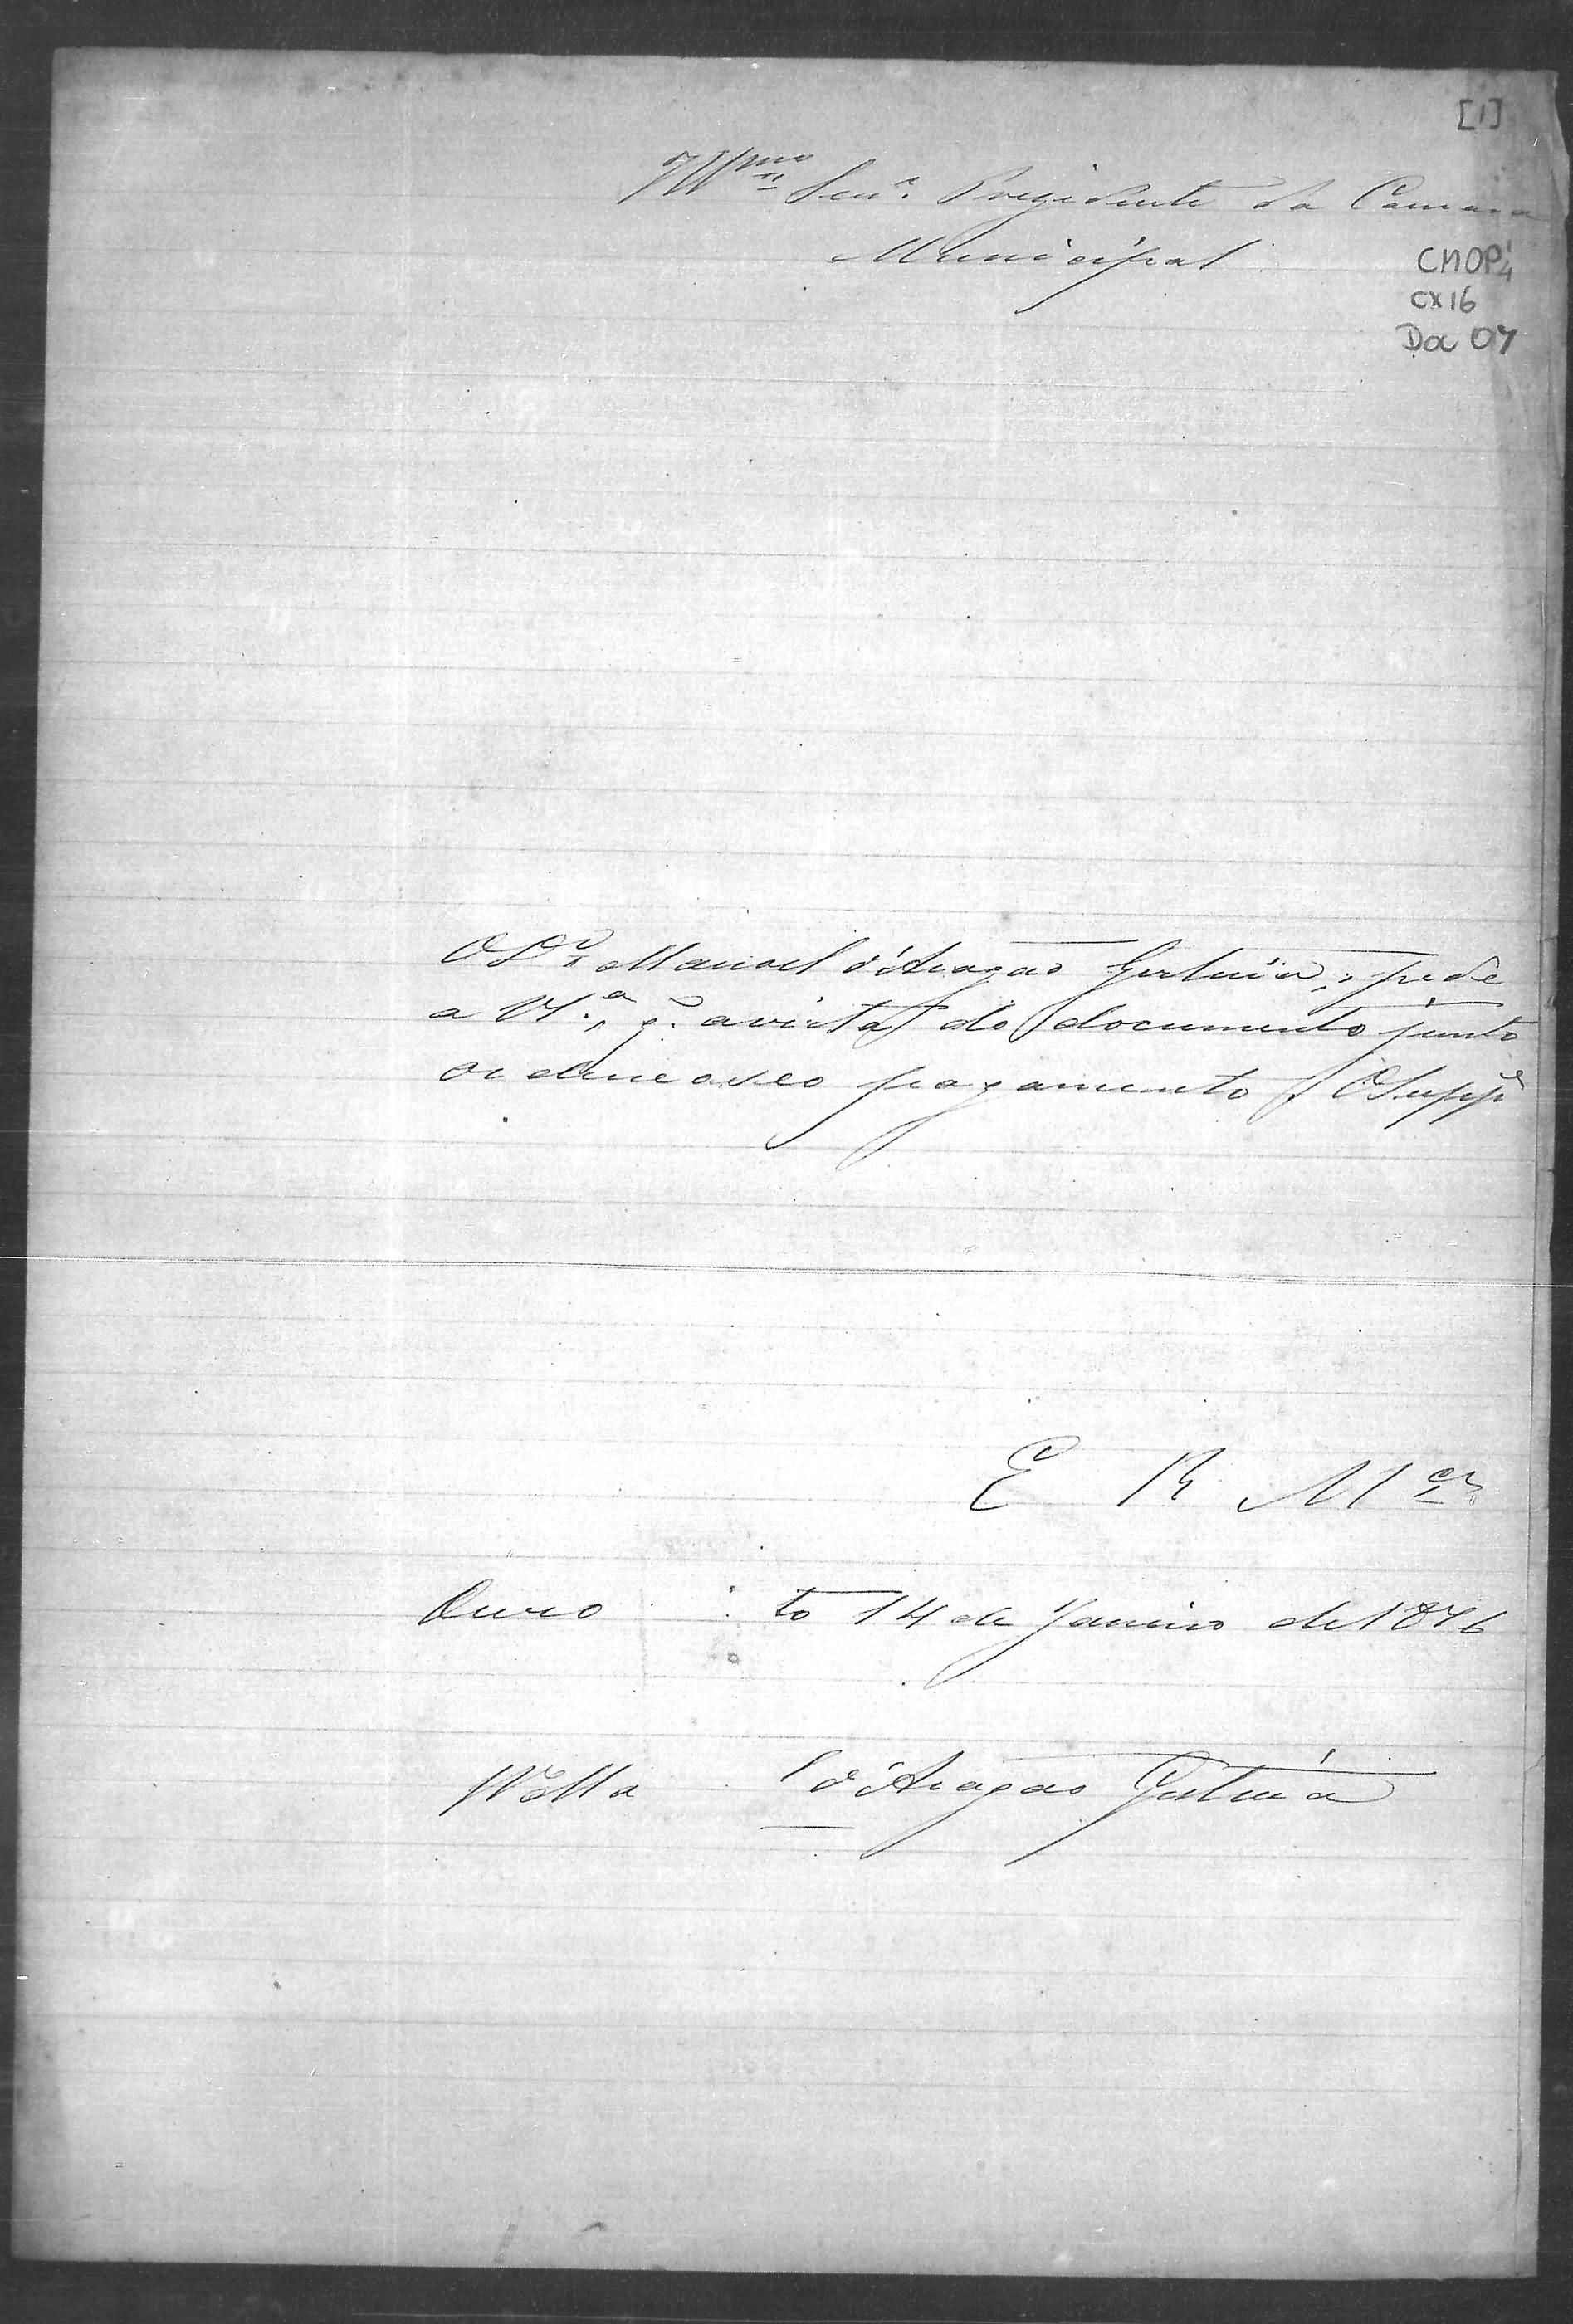 [1]
Illmo Senr. Prezidente da Camara
Municipal
CMOP 1/4
CX 16
Doc 07
O Dr. Manoel d'Aragão Gesteira, pede
a V. Sa. q. avista do documento junto
ordene o seo pagamento. O Suppe
E R Mce
Ouro to 14 de Janeiro de 1876
Ma l d'Aragão Gesteira